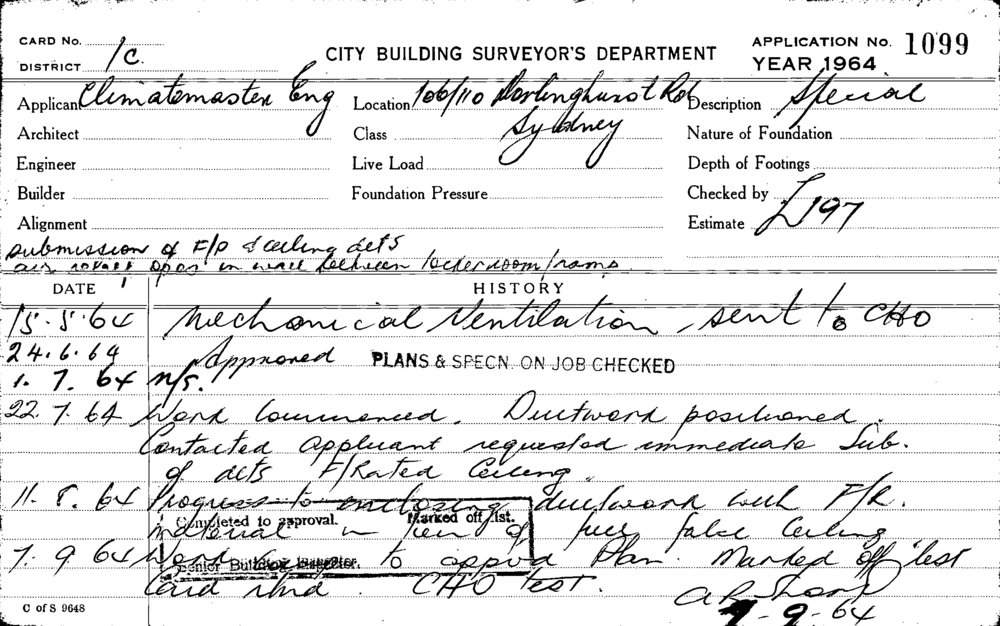 CARD No.
DISTRICT 1C.
CITY BUILDING SURVEYOR'S DEPARTMENT
APPLICATION No. 1099
YEAR 1964
Applicant Climatemaster Eng Location 106/110 Darlinghurst Rd Description Special
Architect Class Sydney Nature of Foundation
Engineer Live Load Depth of Footings
Builder Foundation Pressure Checked by
Alignment Estimate £197
Submission of F/P & ceiling dets
air in wall between lockerroom/
DATE HISTORY
15.5.64 Mechanical Ventilation, sent to CHO
24.6.64 Approved PLANS & SPECN. ON JOB CHECKED
1.7.64 n/s.
22.7.64 Work Commenced. Ductwork positioned.
Contacted applicant requested immediate Sub.
of dets F/Rated Ceiling
11.8.64 Progress to enclosing ductwork with F/R.
Completed to approval. Marked off list.
material in lieu of false Ceiling
7.9.64 Work to appvd Plan. Marked off list
Senior Building Inspector.
Card CHO test.
C of S 9648
7-9-64